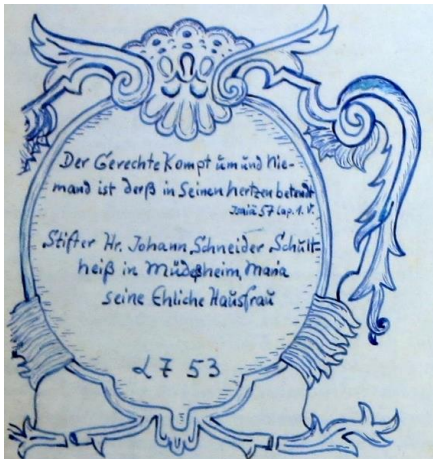 Der Gerechte Kompt üm und Nie-
mand ist derß in Seinen hertzen betendt
57 Cap. 1. V.
Stifter Hr. Johann Schneider Schult-
heiß in Müdesheim, Maria
seine Ehliche Hausfrau
1753